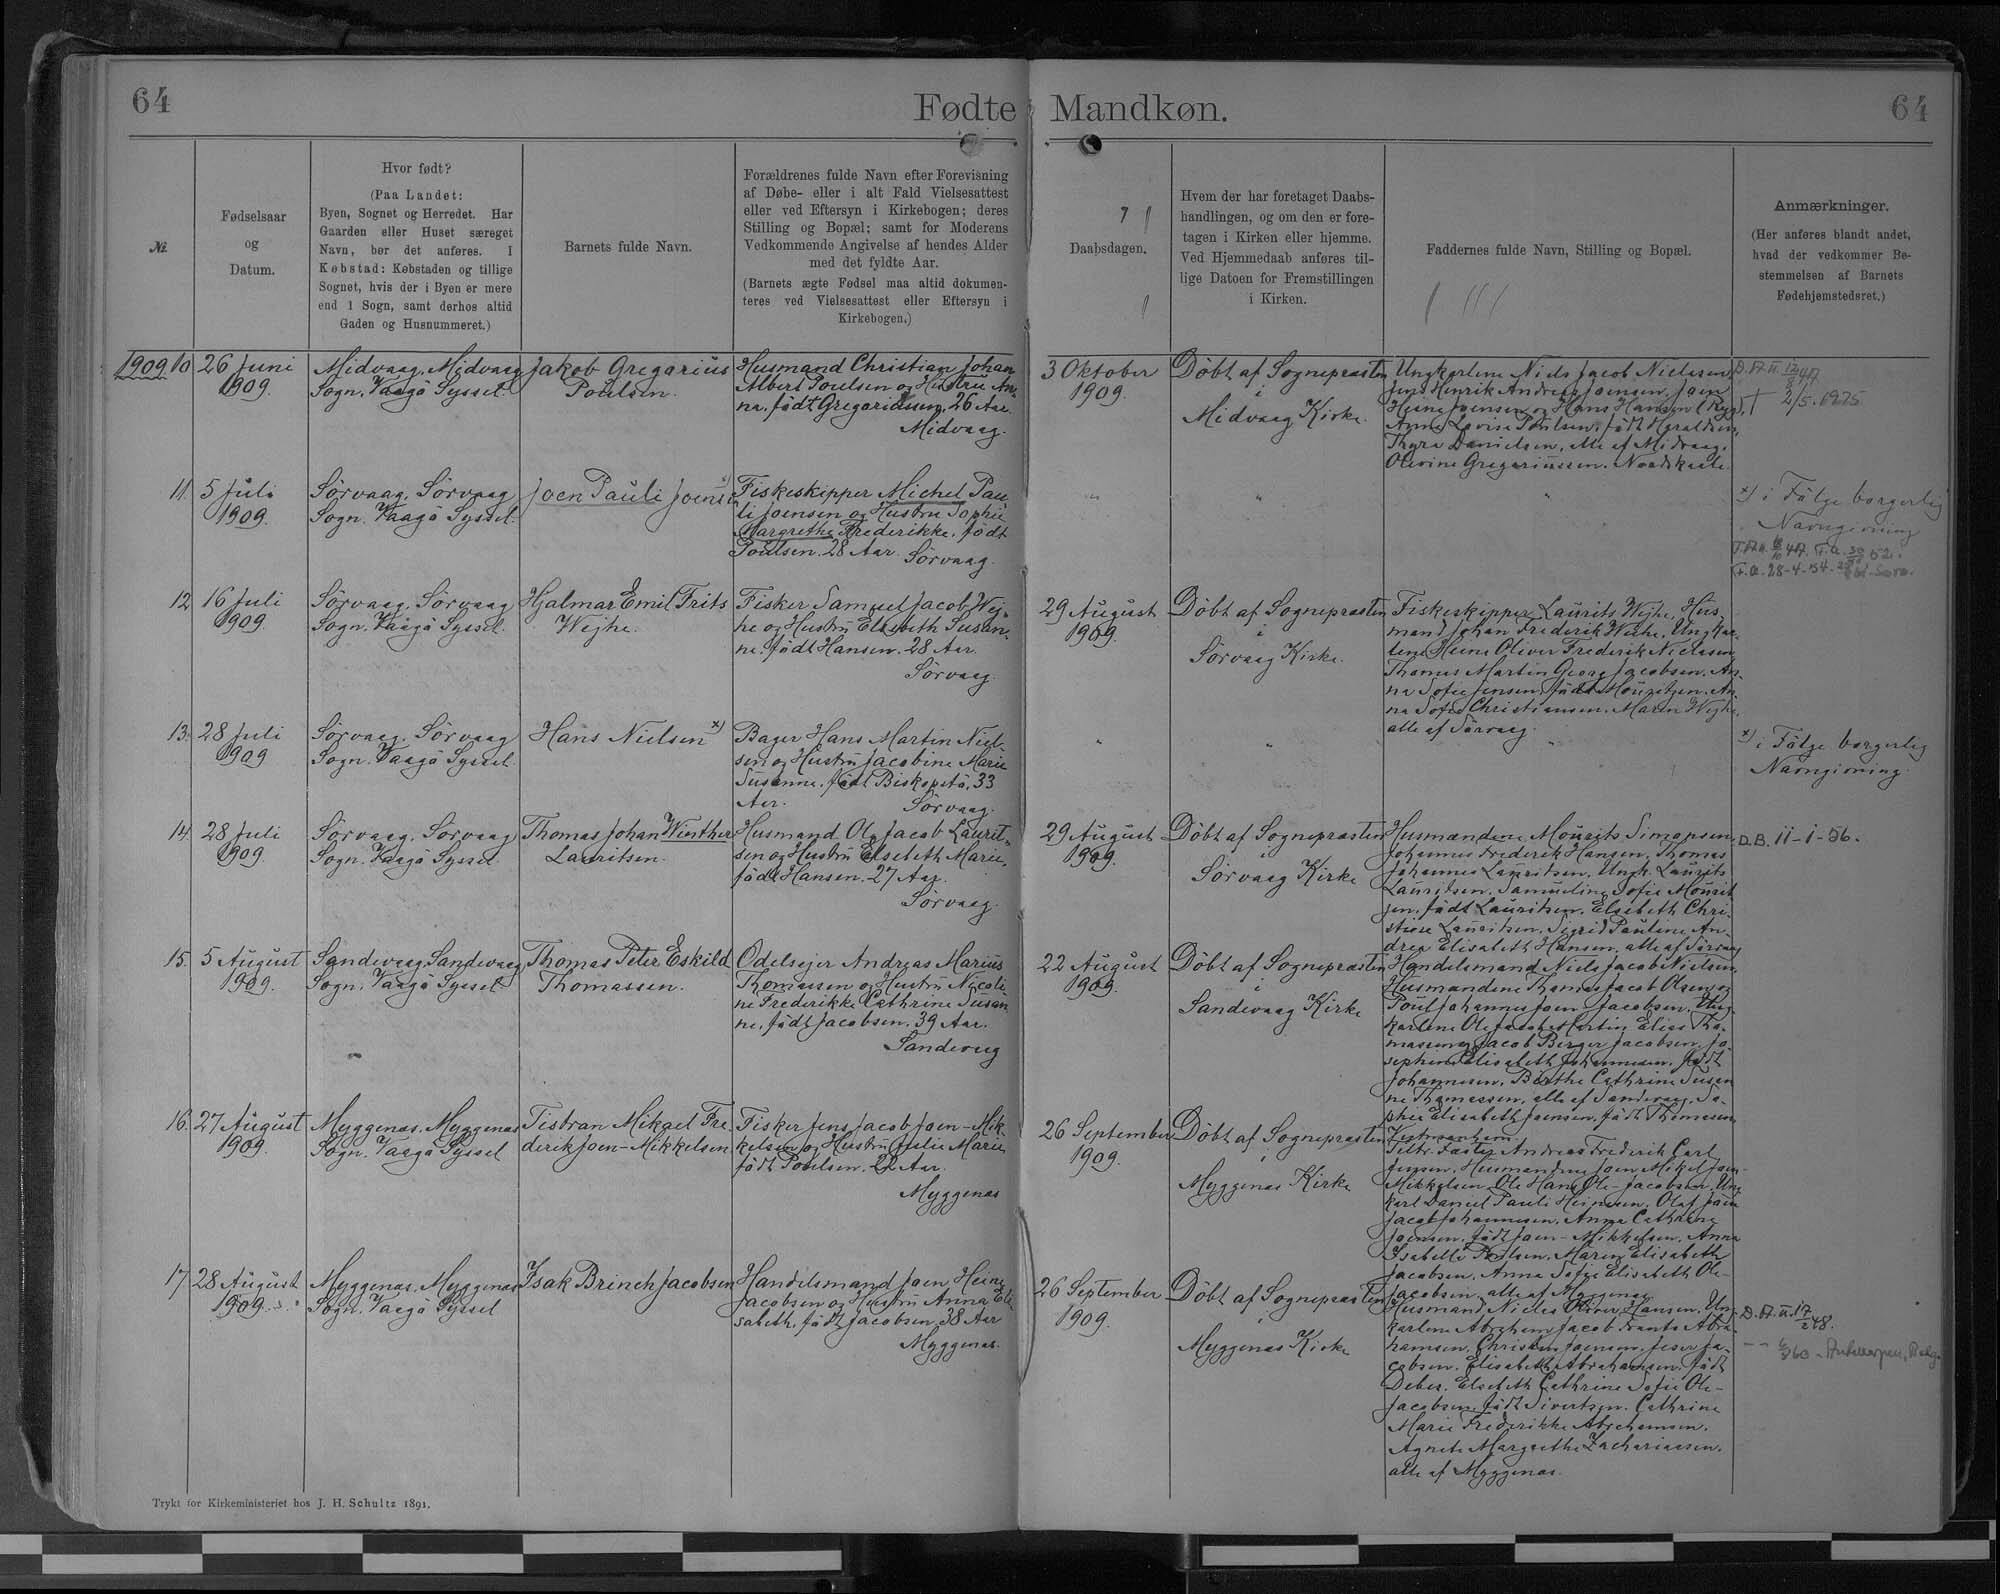 64
Fødte
Mandkøn.
64
Nr.
Fødselsaar
og
Datum.
Hvor født?
(Paa Landet:
Byen, Sognet og Herredet. Har
Gaarden eller Huset særeget
Navn, bør det anføres. I
Købstad: Købstaden og tillige
Sognet, hvis der i Byen er mere
end 1 Sogn, samt derhos altid
Gaden og Husnummeret.)
Barnets fulde Navn.
Forældrenes fulde Navn efter Forevisning
af Døbe- eller i alt Fald Vielsesattest
eller ved Eftersyn i Kirkebogen; deres
Stilling og Bopæl; samt for Moderens
Vedkommende Angivelse af hendes Alder
med det fyldte Aar.
(Barnets ægte Fødsel maa altid dokumen-
teres ved Vielsesattest eller Eftersyn i
Kirkebogen.)
Daabsdagen.
Hvem der har foretaget Daabs-
handlingen, og om den er fore-
tagen i Kirken eller hjemme.
Ved Hjemmedaab anføres til-
lige Datoen for Fremstillingen
i Kirken.
Faddernes fulde Navn, Stilling og Bopæl.
Anmærkninger.
(Her anføres blandt andet,
hvad der vedkommer Be-
stemmelsen af Barnets
Fødehjemstedsret.)
1909 10
26 Juni
1909.
Midvaag. Midvaag
Sogn. Vaagö Syssel.
Jakob Gregarius
Poulsen.
Husmand Christian Johan
Albert Poulsen og Hustru An-
na, födt Gregoriussen, 26 Aar.
Midvaag.
3 Oktober
1909.
Döbt af Sognepræsten
i
Midvaag Kirke.
Ungkarlene Niels Jacob Nielsen
Jens Henrik Andreas Joensen, Joen
Heine Joensen og Hans Hansen
Anne Lovise Poulsen, födt Haraldsen,
Thyra Danielsen, alle af Midvaag,
Olevine Gregoriussen.
† 2/5. 1975
11.
5 Juli
1909.
Sörvaag. Sörvaag
Sogn. Vaagö Syssel.
Joen Pauli Joensen
Fiskeskipper Michel Pau
li Joensen og Hustru Sophie
Margrethe Frederikke, födt
Poulsen. 28 Aar.
Sörvaag.
x) i Fölge borgerlig
Navngivning
12
16 Juli
1909.
Sörvaag. Sörvaag
Sogn. Vaagö Syssel.
Hjalmar Emil Frits
Wejhe.
Fisker Samuel Jacob Wej-
he og Hustru Elsebeth Susan-
ne, födt Hansen. 28 Aar.
Sörvaag.
29 August
1909.
Döbt af Sognepræsten
i
Sörvaag Kirke.
Fiskeskipper Laurits Wejhe, Hus
mand Johan Frederik Wejhe, Ungkar-
lene Heine Oliver Frederik Nielsen
Thomas Martin Georg Jacobsen, An-
na Sofie Jensen, födt Mouritsen, An-
na Sofie Christiansen, Maren Wejhe,
alle af Sörvaag.
13.
28 Juli
1909
Sörvaag. Sörvaag
Sogn. Vaagö Syssel.
Hans Nielsen x)
Bager Hans Martin Niel-
sen og Hustru Jacobine Marie
Susanne, födt Biskopstö, 33
Aar.
Sörvaag.
x) i Fölge borgerlig
Navngivning.
14.
28 Juli
1909.
Sörvaag. Sörvaag
Sogn. Vaagö Syssel.
Thomas Johan Winther
Lauritsen.
Husmand Ole Jacob Laurit-
sen og Hustru Elsebeth Marie,
födt Hansen. 27 Aar.
Sörvaag.
29 August
1909.
Döbt af Sognepræsten
i
Sörvaag Kirke
Husmændene Mourits Simonsen,
Johannes Frederik Hansen, Thomas
Johannes Lauritsen, Ungk. Laurits
Lauritsen, Samueline Sofie Mourit
sen, födt Lauritsen, Elsebeth Chri-
stiane Lauritsen, Sigrid Pauline An-
drea Elisabeth Hansen, alle af Sörvaag
D.B. 11-1-56.
15.
5 August
1909.
Sandevaag. Sandevaag
Sogn. Vaagö Syssel.
Thomas Peter Eskild
Thomassen.
Odelsejer Andreas Marius
Thomassen og Hustru Nicoli-
ne Frederikke Cathrine Susan
ne, födt Jacobsen. 39 Aar.
Sandevaag
22 August
1909.
Döbt af Sognepræsten
i
Sandevaag Kirke
Handelsmand Niels Jacob Nielsen,
Husmændene Thomas Jacob Olsen og
Poul Johannes Joen Jacobsen, Ung-
karlene Ole Jacob Martin Elias Tho-
massen og Jacob Birger Jacobsen, Jo-
sephine Elisabeth Johannesen, födt
Johannesen, Birthe Cathrine Susan
ne Thomassen, alle af Sandevaag, So-
phie Elisabeth Joensen, födt Thomassen
16.
27 August
1909.
Myggenæs. Myggenæs
Sogn. Vaagö Syssel
Tistran Mikael Fre
derik Joen-Mikkelsen
Fisker Jens Jacob Joen-Mik-
kelsen og Hustru Julie Marie
födt Poulsen. 22 Aar.
Myggenæs
26 September
1909.
Döbt af Sognepræsten
i
Myggenæs Kirke
Andreas Frederik Carl
Jensen, Husmændene Joen Mikal Joen-
Mikkelsen, Ole Hans Ole-Jacobsen, Ung
karl Daniel Pauli Heinesen, Olaf Joen
Jacob Johannesen, Anna Cathrine
Joensen, födt Joen-Mikkelsen, Anna
Isabelle Poulsen, Maren Elisabeth
Jacobsen, Anna Sofie Elisabeth Ole-
Jacobsen, alle af Myggenæs
17
28 August
1909.
Myggenæs. Myggenæs
Sogn. Vaagö Syssel
Isak Brinch Jacobsen
Handelsmand Joen Heine
Jacobsen og Hustru Anna Eli
sabeth, födt Jacobsen, 38 Aar
Myggenæs.
26 September
1909.
Döbt af Sognepræsten
i
Myggenæs Kirke
Husmand Niclas Oliver Hansen, Un-
karlene Abraham Jacob Frants Abra-
hamsen, Christen Joensen, Jesper Ja-
cobsen, Elisabeth Abrahamsen, födt
Debes, Elsebeth Cathrine Sofie Ole-
Jacobsen, födt Sivertsen, Cathrine
Marie Frederikke Abrahamsen,
Agnete Margrethe Zachariasen,
alle af Myggenæs.
Trykt for Kirkeministeriet hos J. H. Schultz 1891.